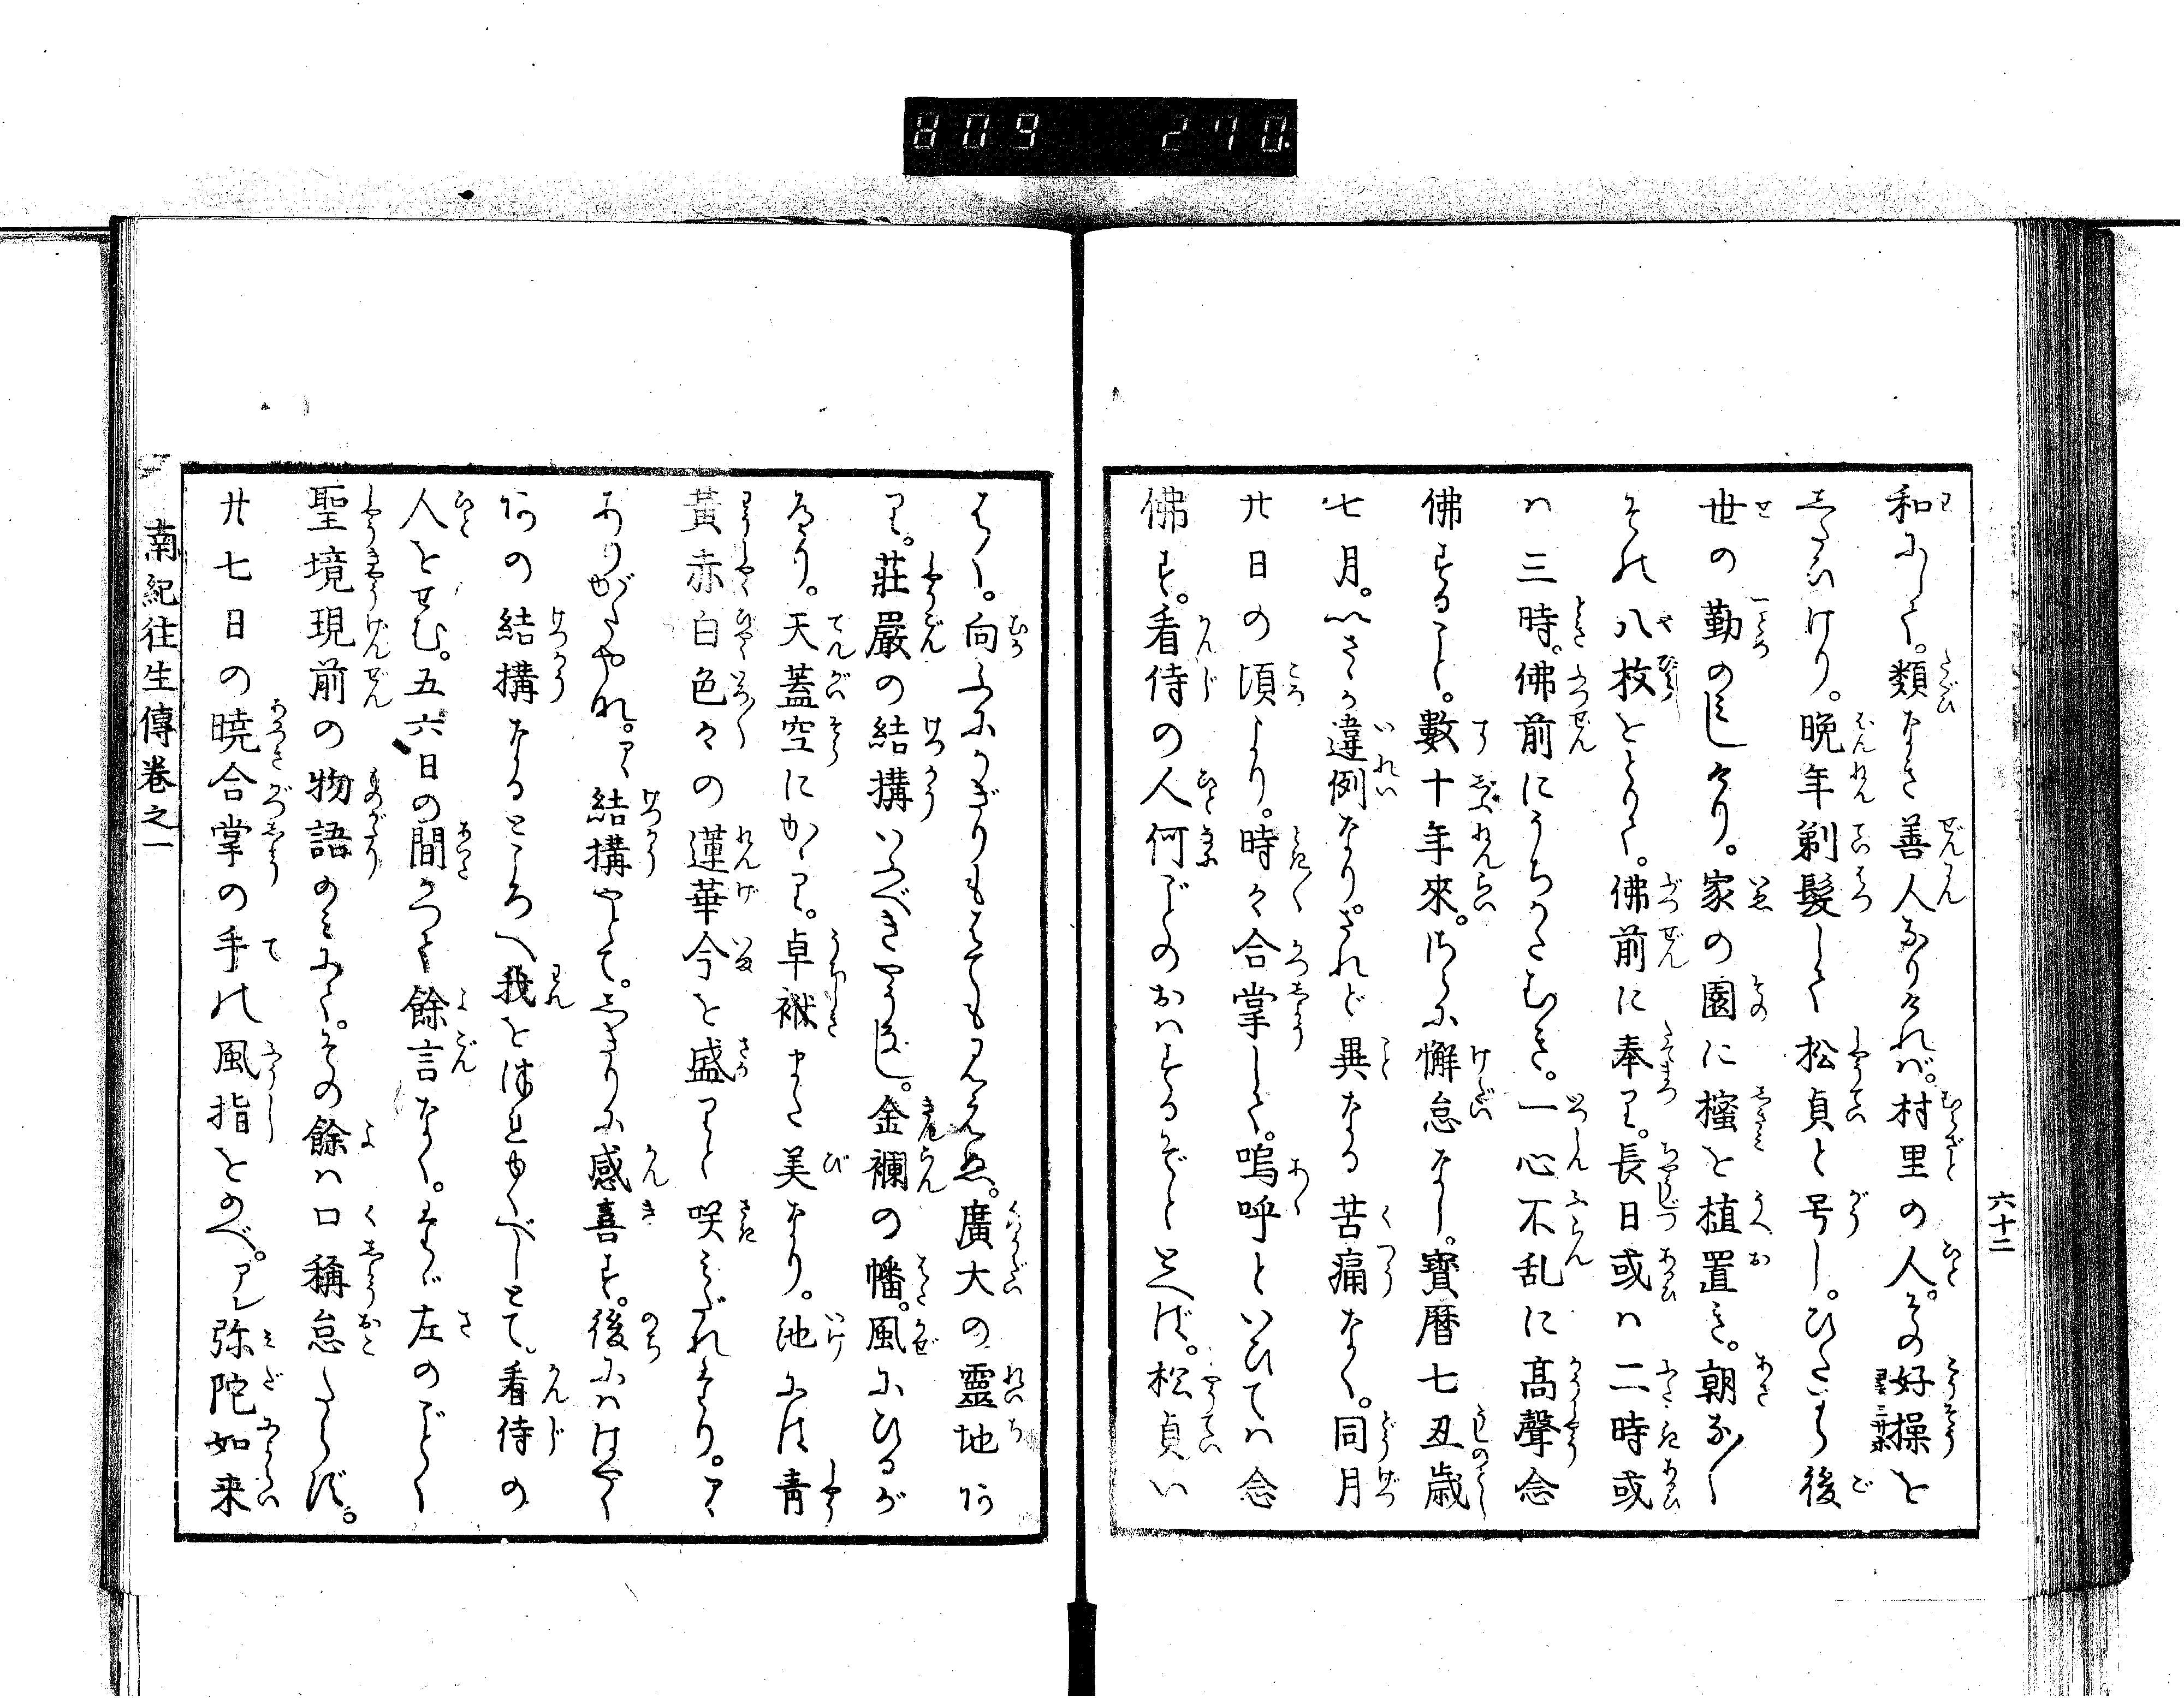 809 270
六十二
和にして。類なき善人なりければ。村里の人。その好操を
したひけり。晩年剃髪して松貞と号し。ひたすら後
世の勤のミしけり。家の園に樒を植置き。朝な〳〵
それ八枚をとりて。佛前に奉り。長日或ハ二時或
ハ三時。佛前にうちかたむき。一心不乱に高聲念
佛すること。數十年來。さらに懈怠なし。寶暦七丑歳
七月。いさゝか違例なり。されど異なる苦痛なく。同月
廿日の頃より。時々合掌して。嗚呼といひてハ念
佛す。看侍の人何ごとのおハするぞととへば。松貞い
はく。向ふにかぎりもはてもみえぬ。廣大の靈地あ
り。莊嚴の結構いふべきやうなし。金襴の幡。風にひるが
へり。天蓋空にかゝり。卓袱また美なり。池には青
黃赤白色々の蓮華今を盛りと咲ミだれたり。アヽ
ありがたやれ。アヽ結構やとて。しきりに感喜す。後にハはやく
あの結構なるところへ我をはこびゆくべしとて。看侍の
人をせむ。五六日の間かつて餘言なく。たゞ左のごとく
聖境現前の物語のミにて。その餘ハ口稱怠たらず。
廿七日の暁合掌の手の風指をのべ。アレ弥陀如来
南紀往生傳巻之一